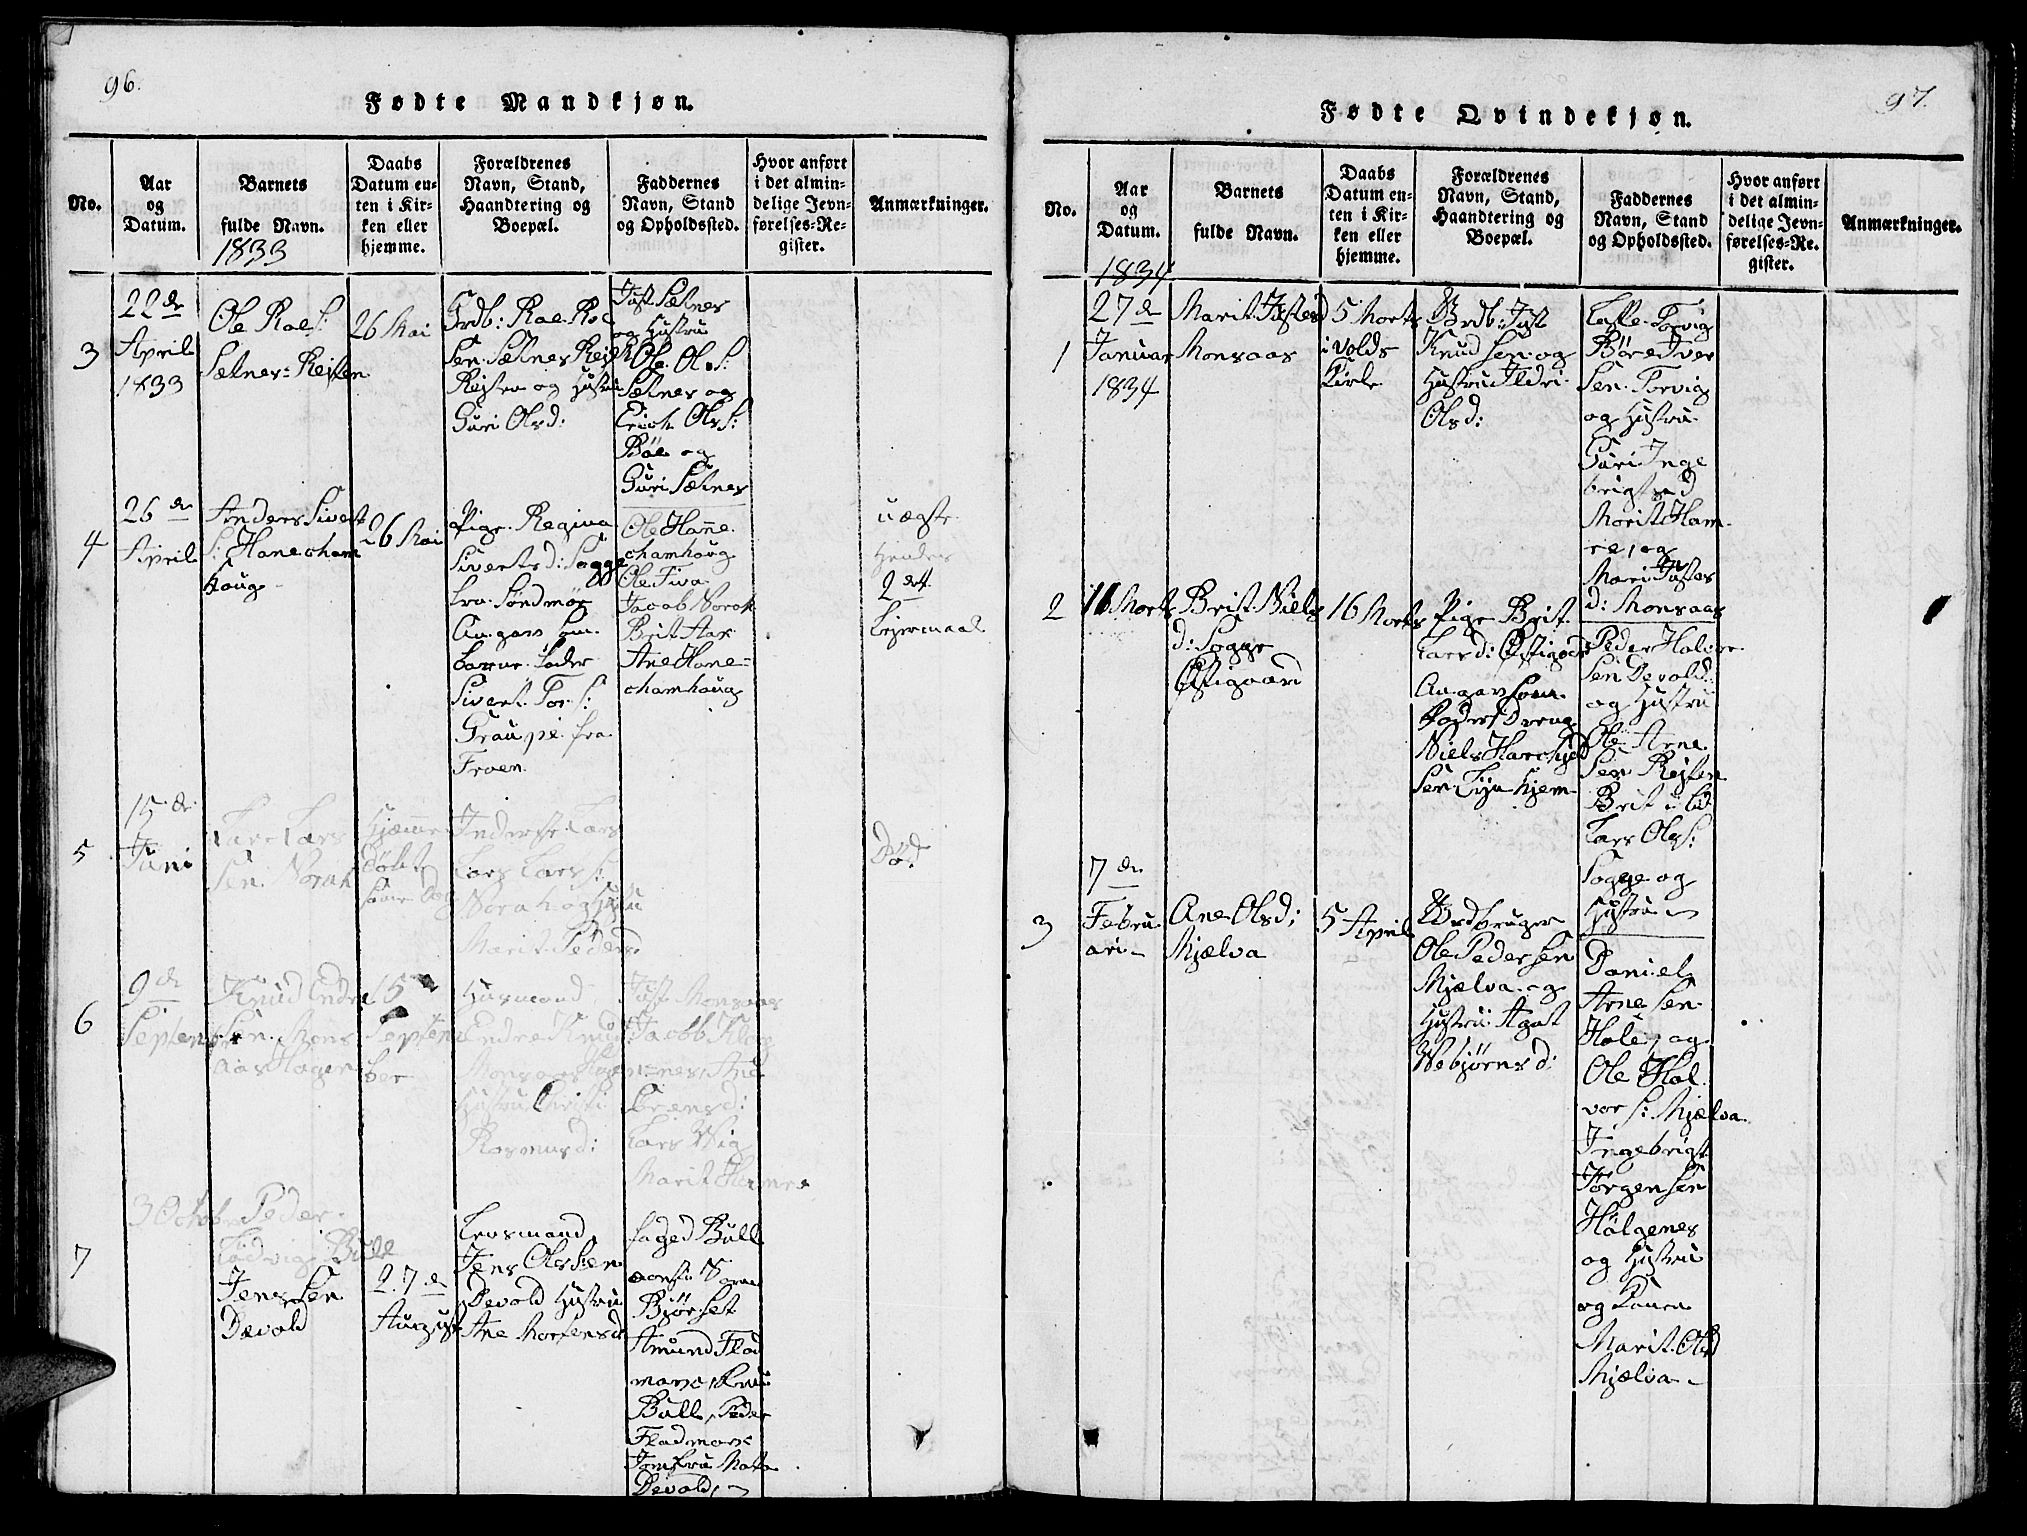 96.
Fødte Mandkjøn.
No.
Aar
og
Datum.
Barnets
fulde Navn.
1833
Daabs
Datum en-
ten i Kir-
ken eller
hjemme.
Forældrenes
Navn, Stand,
Haandtering og
Boepæl.
Faddernes
Navn, Stand
og Opholdssted.
Hvor anført
i det almin-
delige Jevn-
førelses-Re-
gister.
Anmærkninger.
3
22de
April
1833
Ole Roels:
Sætnes-Rejsten
26 Mai
Grdb: Roe Roe
Sen. Sætnes
Rejsten og Hustru
Guri Olsd:
Just Sætnes
og Hustru
Ole Ols:
Sætnes og
Erich Ols:
Böe og
Guri Sætnes
4
26de
April
Anders Sivert
S: Hanecham
houg
26 Mai
Pige Regina
Sivertsd: Sogge
fra Söndmør
Angav som
barne fader
Sivert Tor S:
Graupe fra
Froen
Ole Hanne
chamhoug
Ole Tiva
Jacob Norah
Brit Aar
Ane Hane-
chamhoug
uægte
Hendes
2det
Lejermaal
5
15de
Juni
Lars Lars
Sen Norah
Hjemme
döbt
samme Dag
Inderste Lars
Lars Lars S:
Norah og Hustru
Marit Peders
Död
6
9de
Septem
Knud Endre
Sen Mons
aas Hagen
15
Septem
ber
Husmand
Endre Knuds
Monsaas Hage
Hustru Christi
Rasmusd:
Just Monsaas
Jacob Klog
nes, Ane
Sörensd:
Lars Wig
Marit Hamre
7
3 Octob
Peder
Ludvig Bull
Jens Sen
Dævold
27de
August
Lensmand
Jens Ols Sen
Devold Hustru
Ane Mortensd
faged Bull
Bjørset
Amund Flad
mark, Frue
Bull, Peder
Fladmark
Jomfru Mette
Devold,
97.
Fødte Qvindekjøn.
No.
Aar
og
Datum.
1834
Barnets
fulde Navn.
Daabs
Datum en-
ten i Kir-
ken eller
hjemme.
Forældrenes
Navn, Stand,
Haandtering og
Boepæl.
Faddernes
Navn, Stand
og Opholdssted.
Hvor anført
i det almin-
delige Jevn-
førelses-Re-
gister.
Anmærkninger.
1
27de
Januar
1834
Marit Justesd
Monsaas
5 Morts
i Volds
Kirke
Grdb: Just
Knud Sen og
Hustru Ildri
Olsd:
Torvig
Børe Iver
Sen Torvig
og Hustru
Guri Inge
brigtsd
Marit Ham-
re, og
Mari Justes
d: Monsaas
2
16 Morts
Brit Niels
d: Sogge
Østigaard
16 Morts
Pige Brit
Larsd: Østigard
Angav som
Fader Dreng
Niels Harchjel
Sen Eyn hjem
Peder Halvor
Sen Devold
og Hustru
Ole Arne
Sen Rejsten
Brit
Lars Ols:
Sogge og
Hustru
3
7de
Febru
ari
Ane Olsd:
Mjælva
5 April
Grdbruger
Ole Peder Sen
Mjælva og
Hustru Agat
Webjørnsd:
Daniel
Arne Sen
Hole, og
Ole Hal
vor S: Mjælva
Ingebrigt
Jörgen Sen
Hölgenes
og Hustru
og Konen
Marit Olsd
Mjælva